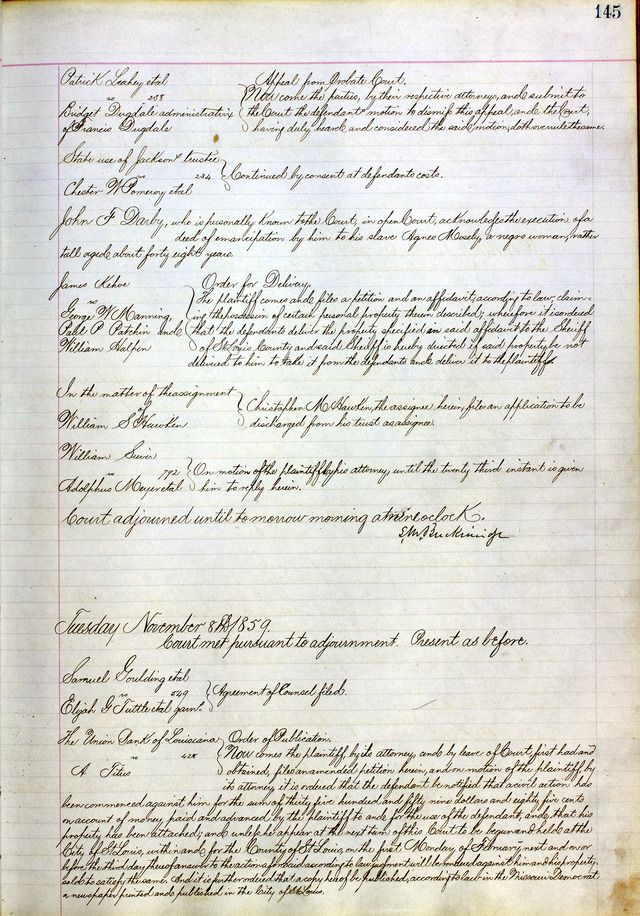 145
Patrick Leahey etal
vs 203
Bridget Dugdale administratrix
of Francis Dugdale
Appeal from Probate Court.
Now come the parties, by their respective attorneys, and submit to
the Court the defendants motion to dismiss this appeal, and the Court,
having duly heard and considered the said motion, doth overrule the same.
State use of Jackson trustee
vs 234
Chester W Pomeroy etal
Continued by consent at defendants costs.
John F Darby, who is personally known to the Court, in open Court, acknowledges the execution of a
deed of emancipation by him to his slave Agnes Mosely, a negro woman, rather
tall aged about forty eight years.
James Kehoe
vs
George W Manning,
Patk P Patchin and
William Halpin
Order for Delivery.
The plaintiff comes and files a petition and an affidavit, according to law, claim-
ing the possession of certain personal property therein described; wherefore it is ordered
that the defendants deliver the property specified in said affidavit to the Sheriff
of St Louis County and said Sheriff is hereby directed if said property be not
delivered to him to take it from the defendants and deliver it to the plaintiff.
In the matter of the assignment
of
William S Hawken
Christopher M Hawken, the assignee herein, files an application to be
discharged from his trust as assignee.
William
vs 792
Adolphus Meyer etal
On motion of the plaintiff by his attorney, until the twenty third instant is given
him to reply herein.
Court adjourned until tomorrow morning at nine oclock.
Tuesday November 8th 1859.
Court met pursuant to adjournment. Present as before.
Samuel Goulding etal
vs 549
Elijah G Tuttle etal garn.
Agreement of Counsel filed.
The Union Bank of Louisiana
vs 428
A Titus
Order of Publication.
Now comes the plaintiff, by its attorney, and by leave of Court, first had and
obtained, files an amended petition herein, and on motion of the plaintiff, by
its attorney, it is ordered that the defendant be notified that a civil action has
been commenced against him for the sum of thirty five hundred and fifty nine dollars and eighty five cents
on account of money paid and advanced by the plaintiff to and for the use of the defendant; and, that his
property has been attached; and unless he appear at the next term of this Court to be begun and held at the
City of St Louis, within and for the County of St Louis, on the first Monday, of February next, and on or
before the third day thereof answer to the action aforesaid according to law judgment will be rendered against him and his property
sold to satisfy the same. And it is further ordered that a copy hereof be published, according to law in the Missouri Democrat
a newspaper printed and published in the City of St Louis.